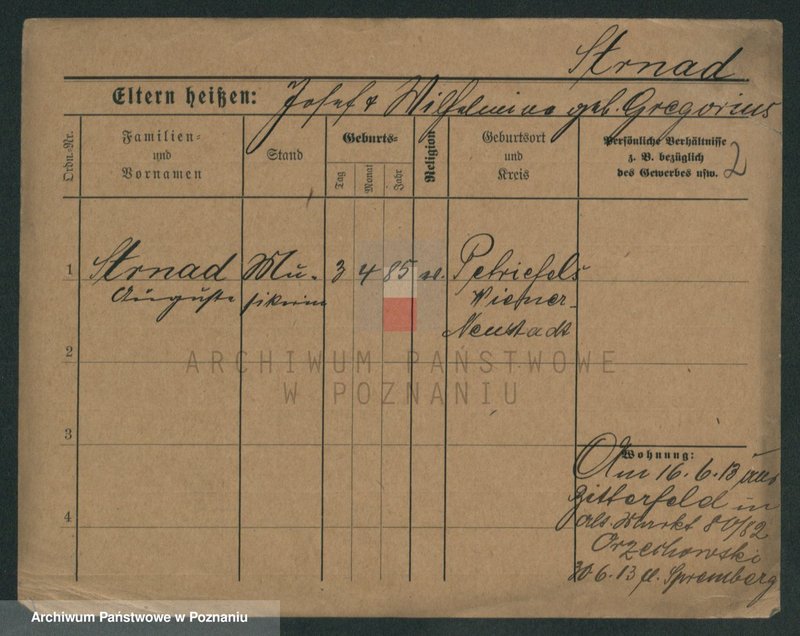 Strnad
Eltern heißen: Josef & Wilhelmine geb. Gregorius
Ordn.-Nr.
Familien- und Vornamen
Stand
Geburts-
Tag
Monat
Jahr
Religion
Geburtsort und Kreis
Persönliche Verhältnisse
z. B. bezüglich
des Gewerbes usw.
2
1 Strnad Mu- 3 4 85 Petriefels
Auguste sikerin Wiener-
Neustadt
2
3
4
Wohnung:
Am 16.6.13 aus
Bitterfeld in
Alt. Markt 80/82
Orzechowski
30 6.13 Spremberg
ARCHIWUM PAŃSTWOWE
W POZNANIU
Archiwum Państwowe w Poznaniu